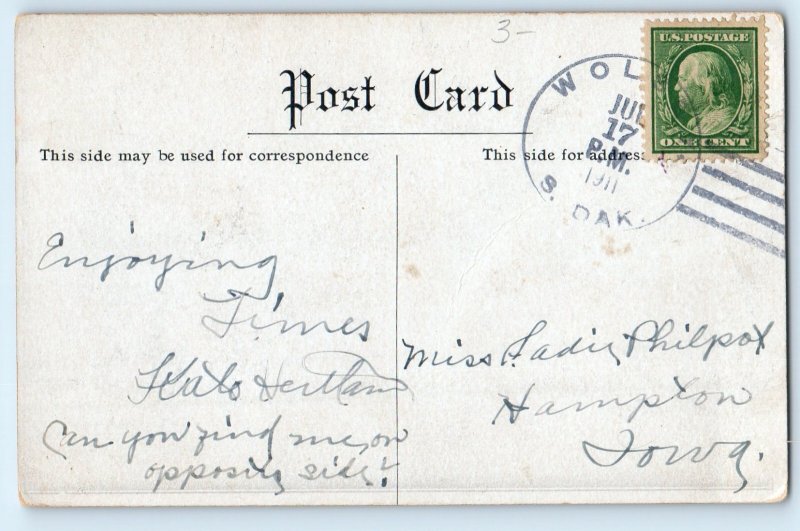 3-
Post Card
This side may be used for correspondence
This side for address
U.S. POSTAGE
ONE CENT
WOL
JUL
17
P.M.
1911
S. DAK.
Enjoying
Times
Can you find me, on
opposing side?
Miss Philpot
Hampton
Iowa.